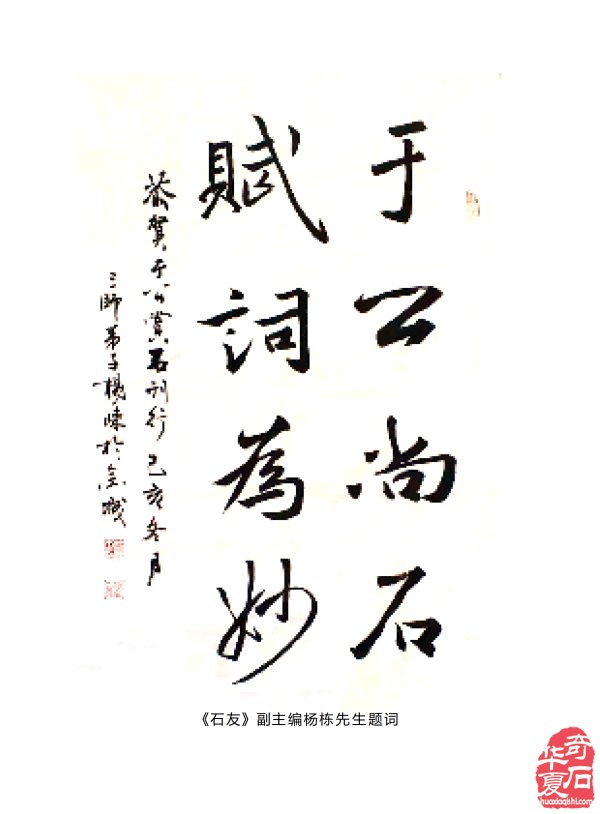 于公尚石
賦詞為妙
恭賀于公賞石刊行己亥冬月
三師弟子楊棟於京城
《石友》副主编杨栋先生题词
华夏奇石
huaxiaqishi.com